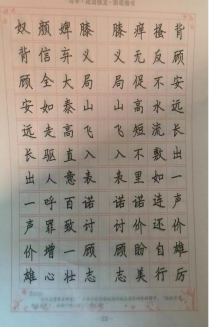 奴颜婢膝 膝痒搔背
背信弃义 义无反顾
顾全大局 局促不安
安如泰山 山高水远
远走高飞 飞短流长
长驱直入 入不敷出
出人意表 表里如一
一呼百诺 诺诺连声
声罪致讨 讨价还价
价增一顾 顾盼自雄
雄心壮志 志美行厉